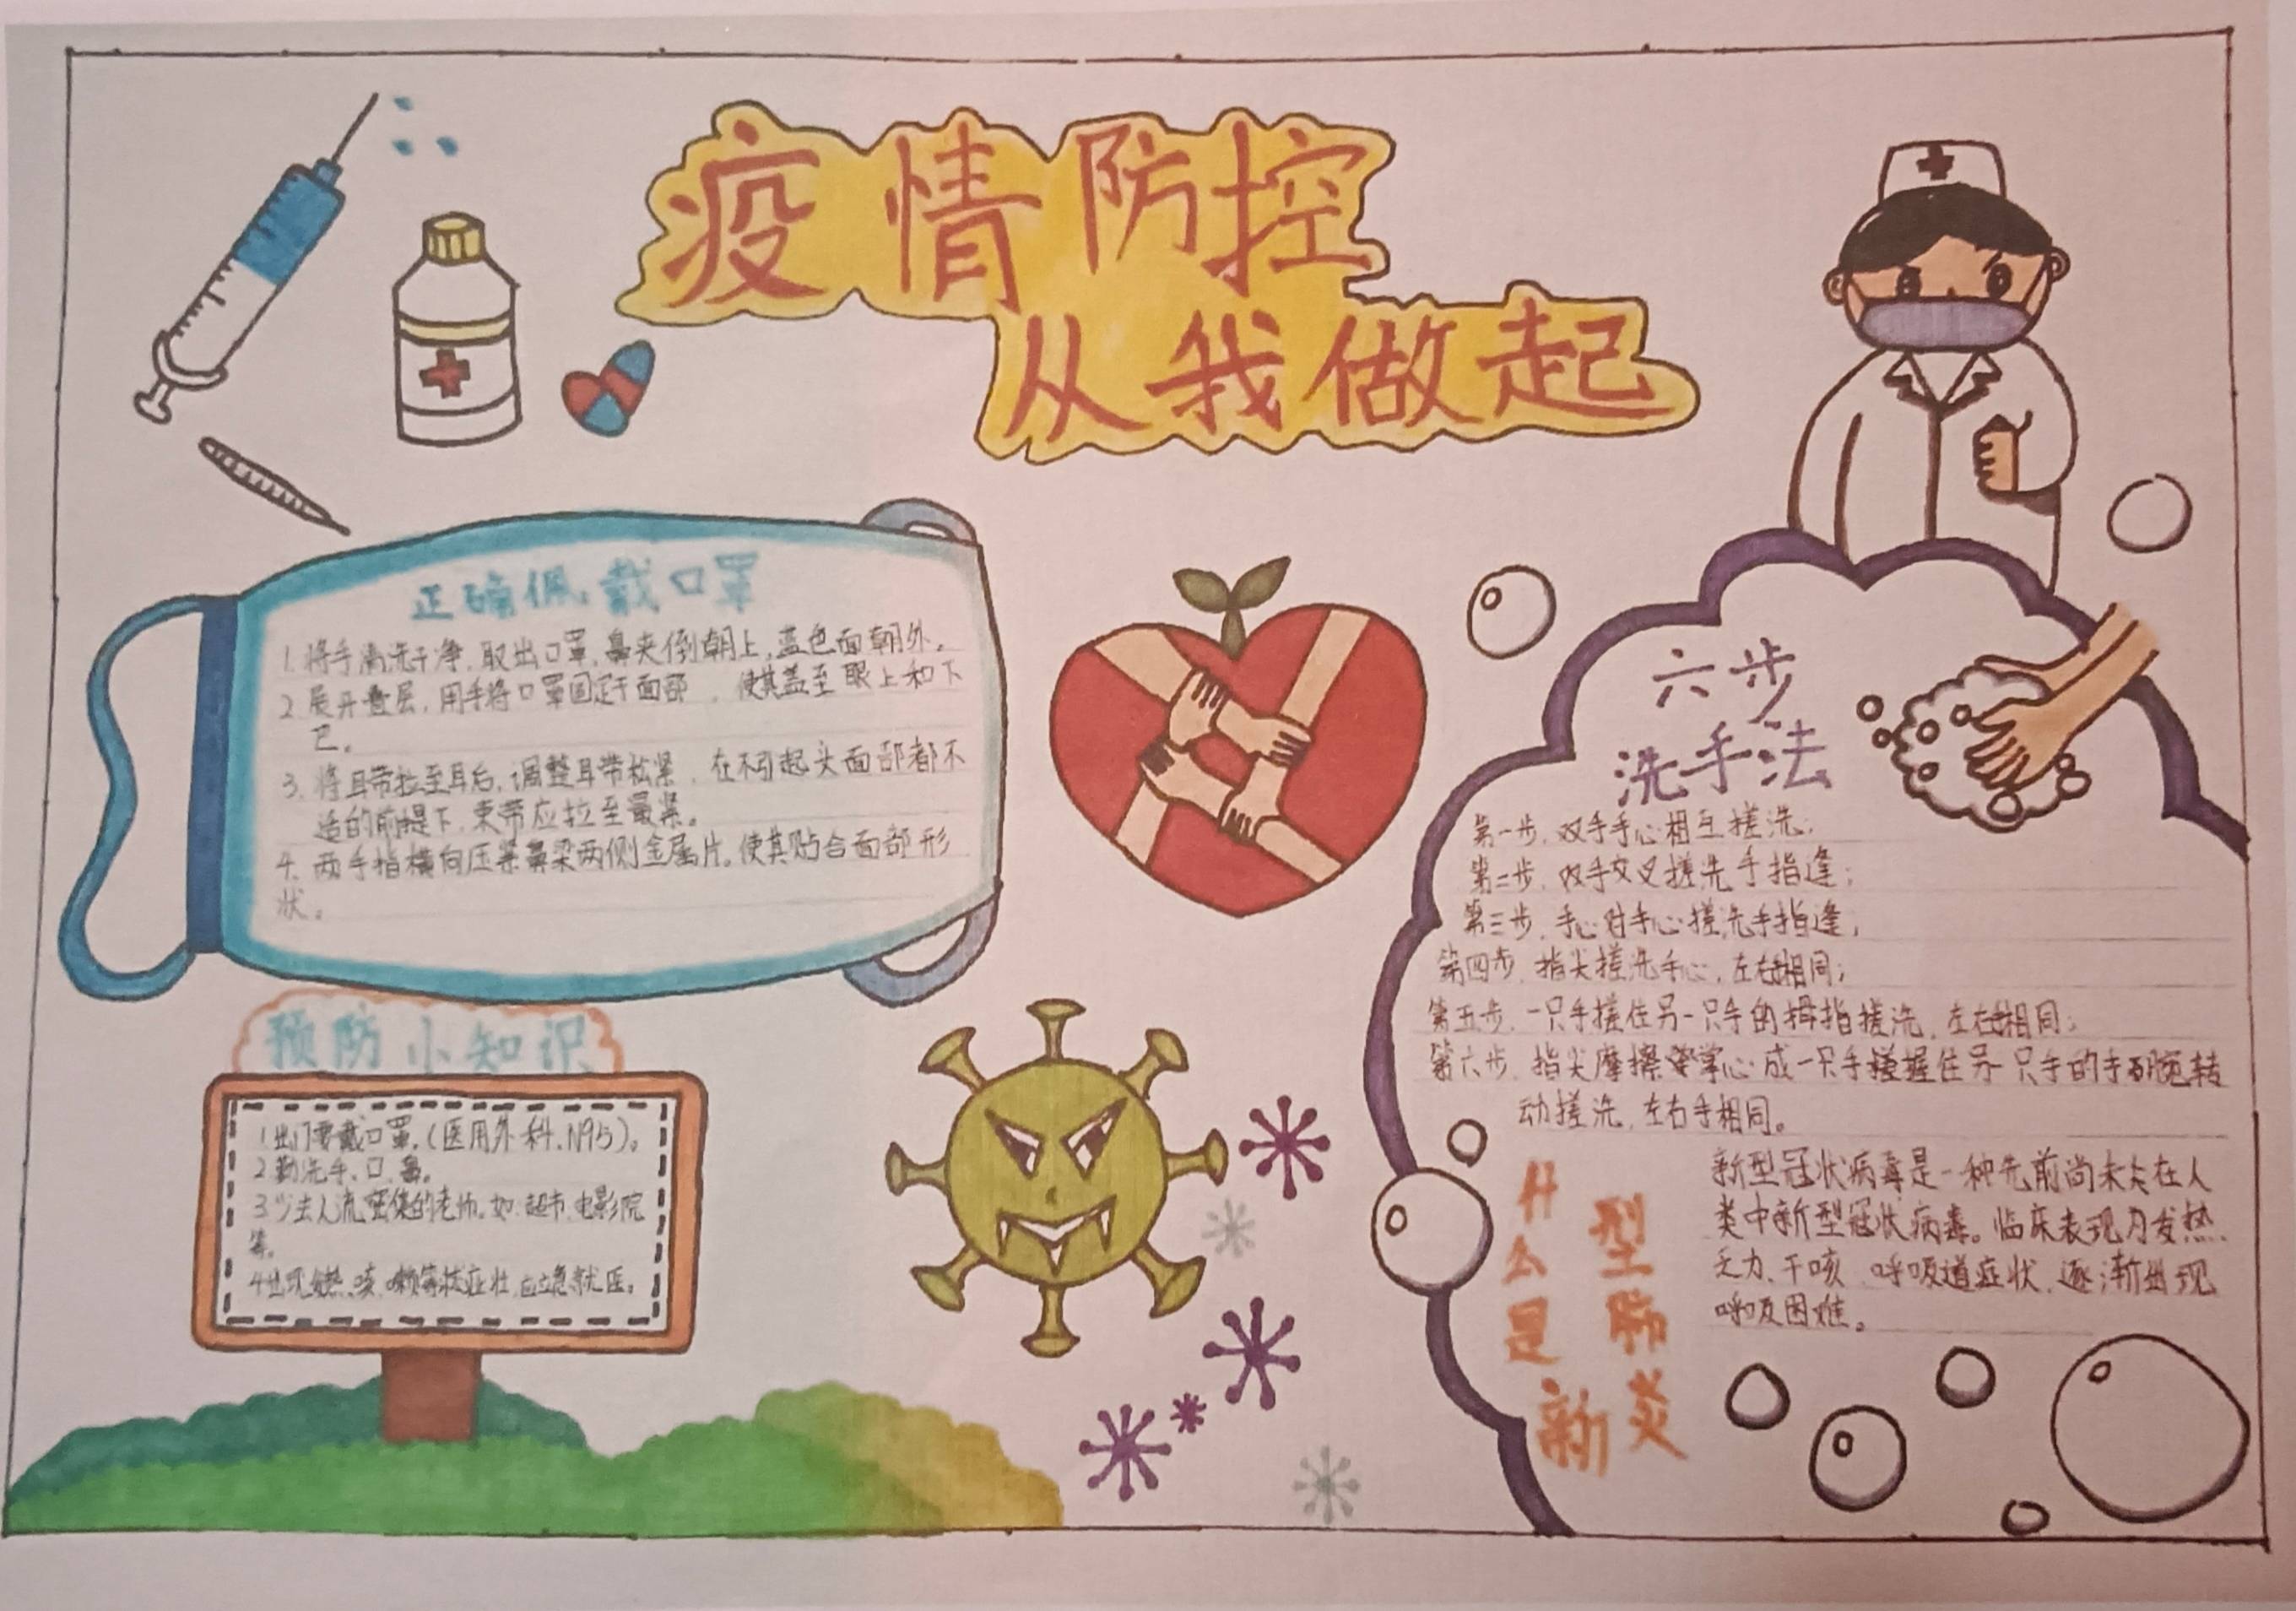 疫情防控
从我做起
正确佩戴口罩
1. 将手清洗干净,取出口罩,鼻夹侧朝上,蓝色面朝外。
2. 展开叠层,用手将口罩固定于面部,使其盖至眼上和下
巴。
3. 将耳带拉至耳后,调整耳带松紧,在不引起头面部都不
适的前提下,束带应拉至最紧。
4. 两手指横向压紧鼻梁两侧金属片,使其贴合面部形
状。
预防小知识
1.出门要戴口罩,(医用外科.N95)。
2.勤洗手、口、鼻。
3.少去人流密集的老师,如:超市、电影院
等。
4.出现发热、咳嗽等状症壮,应立急就医。
六步
洗手法
第一步,双手手心相互搓洗;
第二步,双手交叉搓洗手指逢;
第三步,手心对手心搓洗手指逢;
第四步,指尖搓洗手心,左右相同;
第五步,一只手搓住另一只手的拇指搓洗,左右相同;
第六步,指尖摩擦掌心或一只手握住另一只手的手腕转
动搓洗,左右手相同。
什么是新型肺炎
新型冠状病毒是一种先前尚未在人
类中新型冠状病毒。临床表现为发热、
乏力、干咳、呼吸道症状,逐渐出现
呼吸困难。